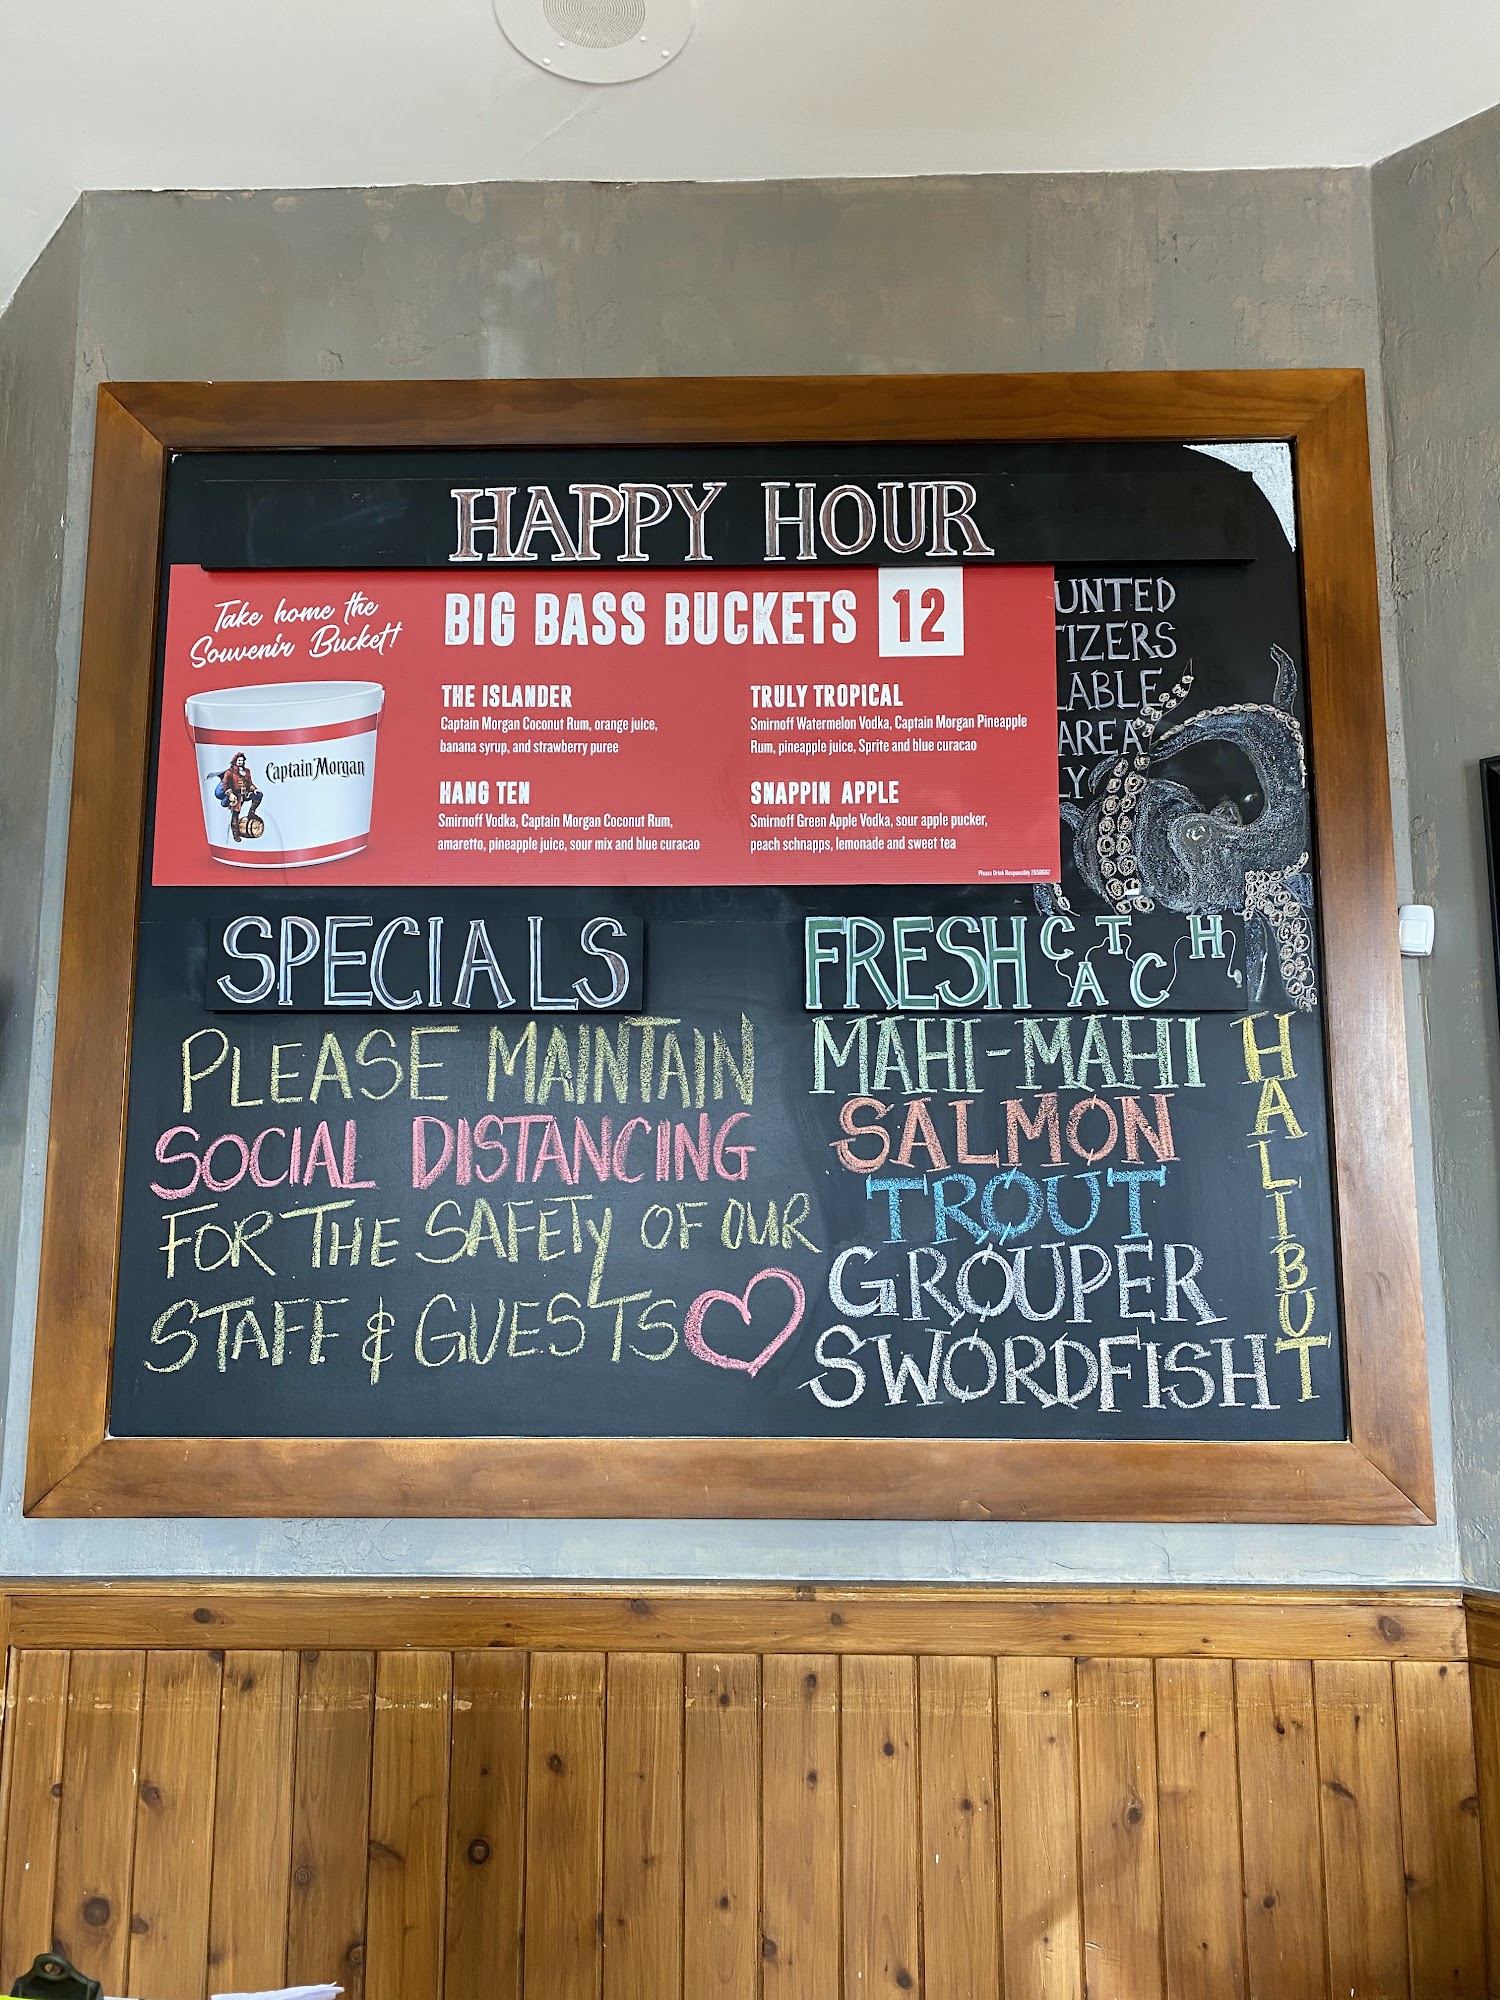 HAPPY HOUR
Take home the
Souvenir Bucket!
Captain Morgan
BIG BASS BUCKETS 12
THE ISLANDER
Captain Morgan Coconut Rum, orange juice,
banana syrup, and strawberry puree
TRULY TROPICAL
Smirnoff Watermelon Vodka, Captain Morgan Pineapple
Rum, pineapple juice, Sprite and blue curacao
HANG TEN
Smirnoff Vodka, Captain Morgan Coconut Rum,
amaretto, pineapple juice, sour mix and blue curacao
SNAPPIN APPLE
Smirnoff Green Apple Vodka, sour apple pucker,
peach schnapps, lemonade and sweet tea
UNTED
TIZERS
LABLE
AREA
LY
SPECIALS
PLEASE MAINTAIN
SOCIAL DISTANCING
FOR THE SAFETY OF OUR
STAFF & GUESTS
FRESH CATCH
MAHI-MAHI
SALMON
TROUT
GROUPER
SWORDFISH
HALIBUT